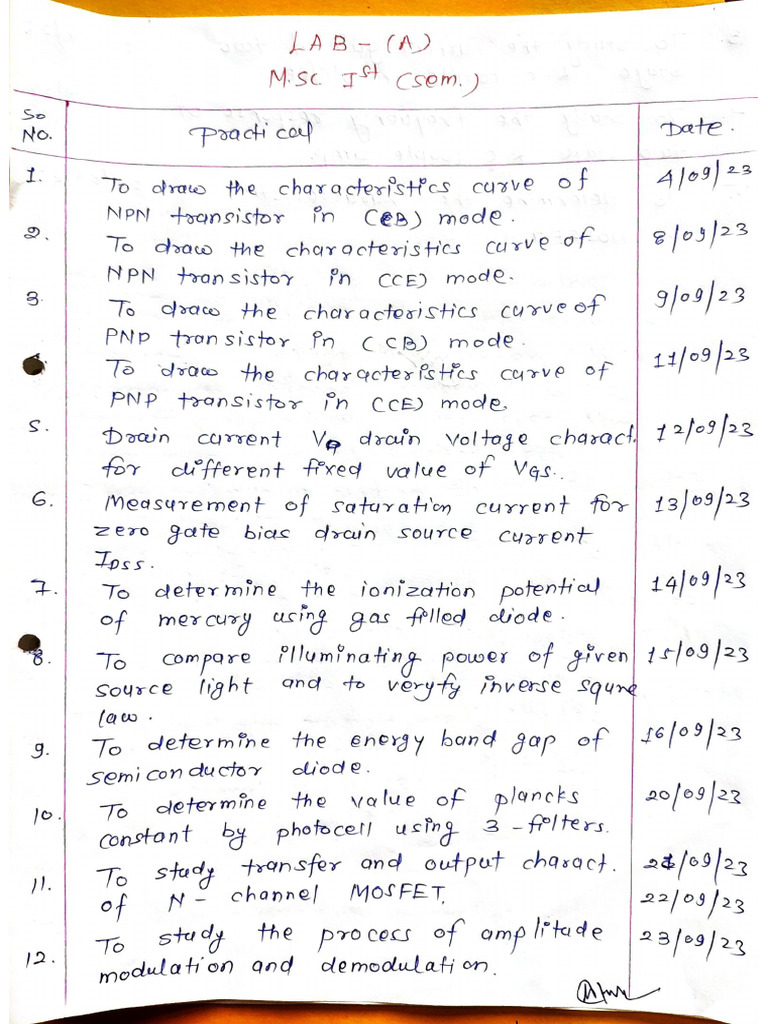 LAB - (A)
M.SC. Ist (sem.)
So NO. Practical Date.
1. To draw the characteristics curve of 4/09/23
NPN transistor in (CB) mode.
2. To draw the characteristics curve of 8/09/23
NPN transistor in (CE) mode.
3. To draw the characteristics curve of 9/09/23
PNP transistor in (CB) mode.
To draw the characteristics curve of 11/09/23
PNP transistor in (CE) mode.
5. Drain current drain voltage charact. 12/09/23
for different fixed value of VGS..
6. Measurement of saturation current for 13/09/23
zero gate bias drain source current
IDSS.
7. To determine the ionization potential 14/09/23
of mercury using gas filled diode.
8. To compare illuminating power of given 15/09/23
source light and to veryfy inverse squre
law.
9. To determine the energy band gap of 16/09/23
semiconductor diode.
10. To determine the value of plancks 20/09/23
constant by photocell using 3-filters.
11. To study transfer and output charact. 21/09/23
of N- channel MOSFET. 22/09/23
12. To study the process of amplitude 23/09/23
modulation and demodulation.